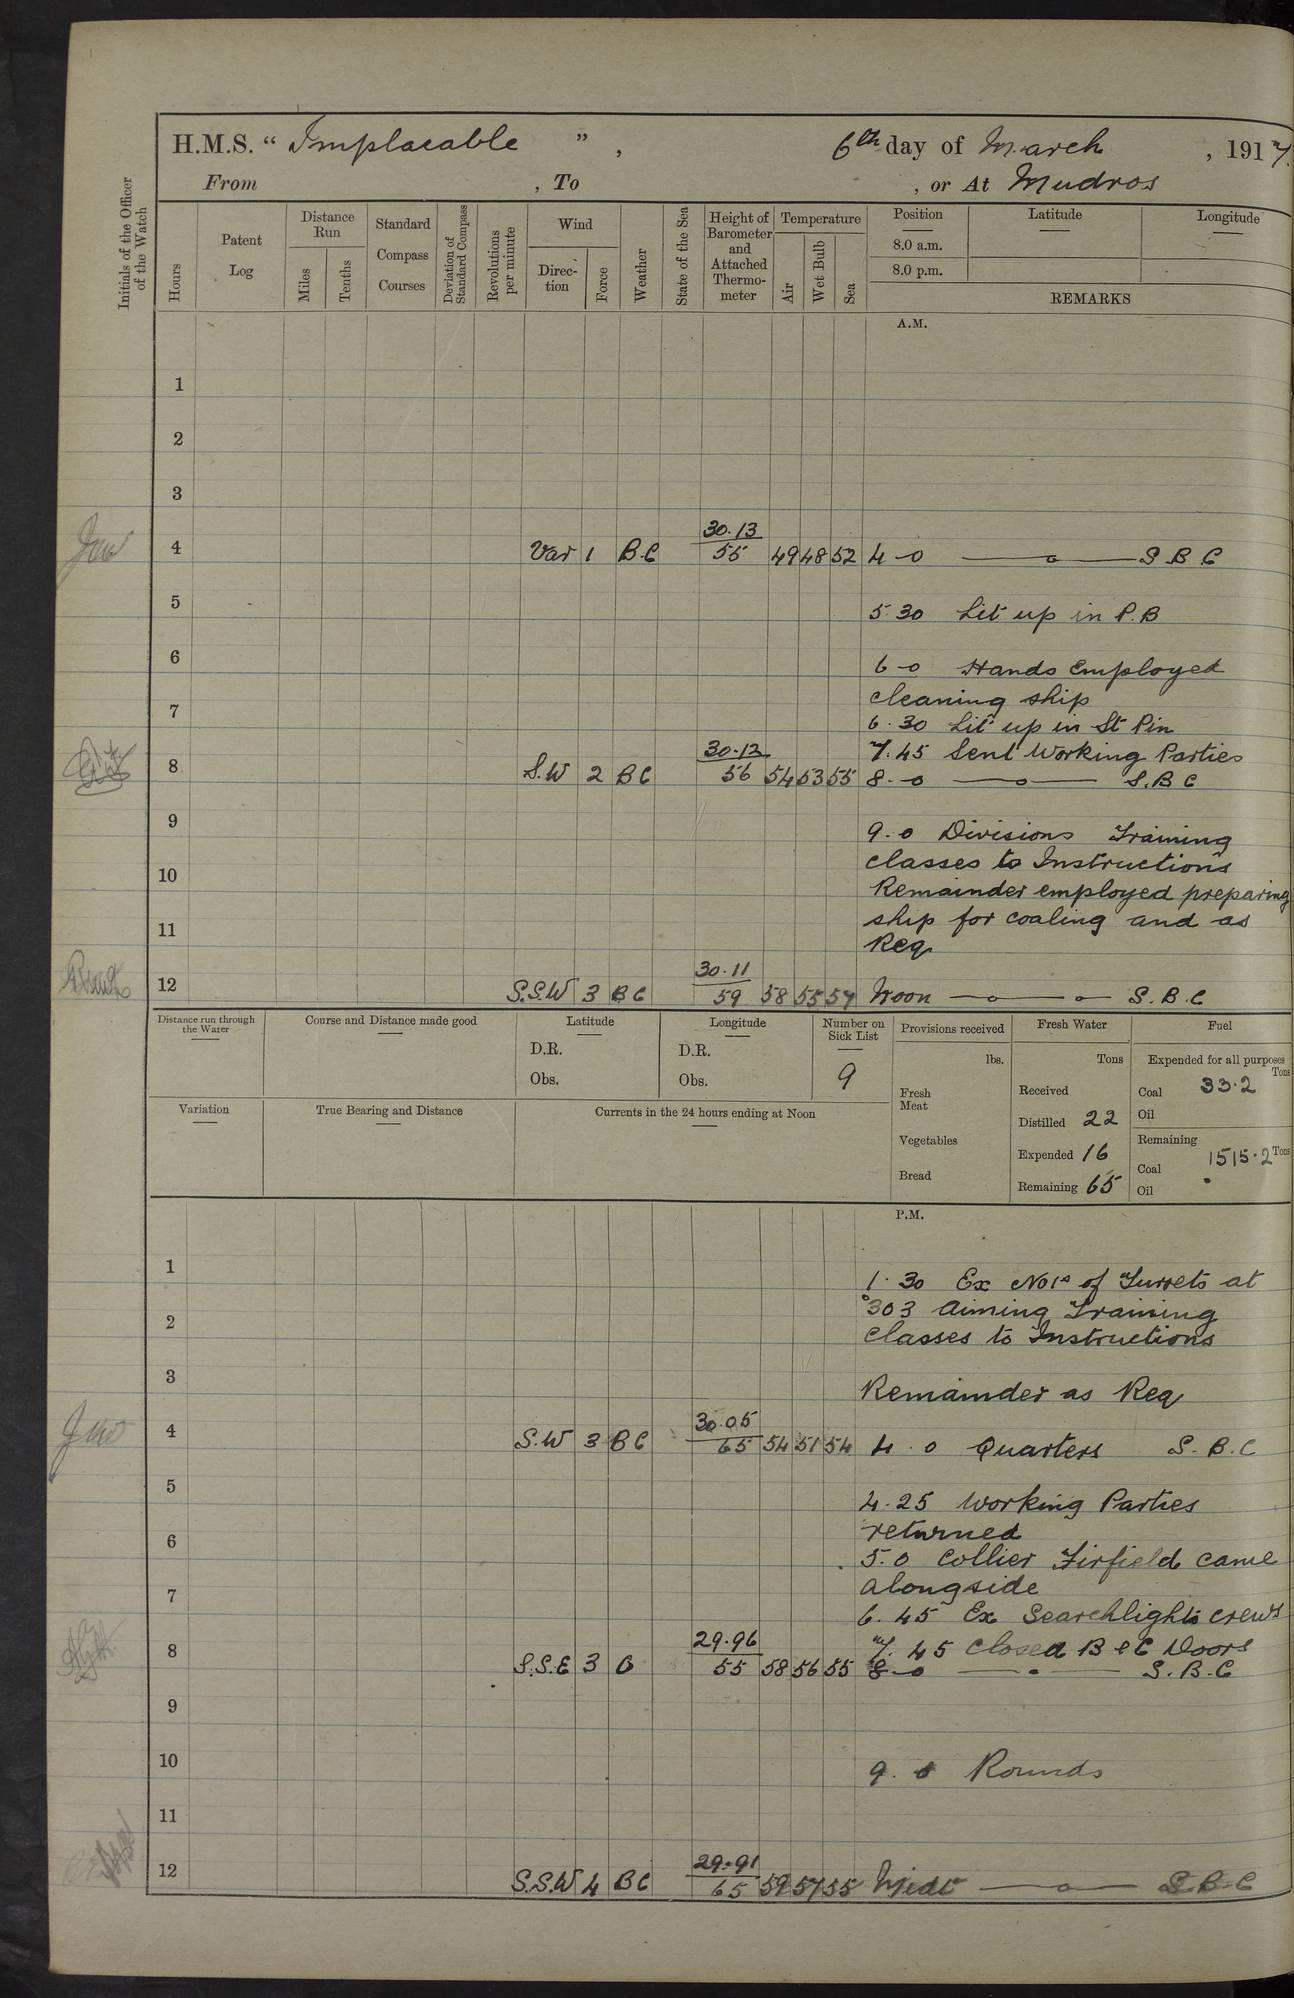 H.M.S. “ Implacable ” , 6th day of March , 1917.
From , To , or At Mudros
Initials of the Officer of the Watch
Hours
Patent Log
Distance Run
Miles
Tenths
Standard Compass Courses
Deviation of Standard Compass
Revolutions per minute
Wind
Direction
Force
Weather
State of the Sea
Height of Barometer and Attached Thermometer
Temperature
Air
Wet Bulb
Sea
Position
8.0 a.m.
8.0 p.m.
Latitude
Longitude
REMARKS
A.M.
1
2
3
30.13
4 Var 1 B.C 55 49 48 52 4-0 S B C
5
5.30 Lit up in P.B
6
6-0 Hands Employed
cleaning ship
7
6.30 Lit up in St Pin
30.12 7.45 Sent Working Parties
8 S.W 2 B C 56 54 53 55 8-0 S.B C
9
9.0 Divisions Training
classes to Instructions
10
Remainder employed preparing
ship for coaling and as
11
Req
30.11
12 S.S.W 3 B C 59 58 55 57 Noon S.B.C
Distance run through the Water
Course and Distance made good
Latitude
D.R.
Obs.
Longitude
D.R.
Obs.
Number on Sick List
9
Provisions received
lbs.
Fresh Meat
Vegetables
Bread
Fresh Water
Tons
Received
Distilled 22
Expended 16
Remaining 65
Fuel
Expended for all purposes
Tons
Coal 33.2
Oil
Remaining
Tons
Coal 1515.2
Oil
Variation
True Bearing and Distance
Currents in the 24 hours ending at Noon
P.M.
1
1.30 Ex No1s of Turrets at
.303 Aiming Training
2
classes to Instructions
3
Remainder as Req
30.05
4 S.W 3 B C 65 54 51 54 4.0 Quarters S.B.C
5
4.25 Working Parties
returned
6
5.0 Collier Firfield came
alongside
7
6.45 Ex Searchlights crews
29.96 7.45 Closed B & C Doors
8 S.S.E 3 O 55 58 56 55 8-0 S.B.C
9
10
9.0 Rounds
11
29.91
12 S.S.W 4 B C 65 59 57 55 Midt S.B.C